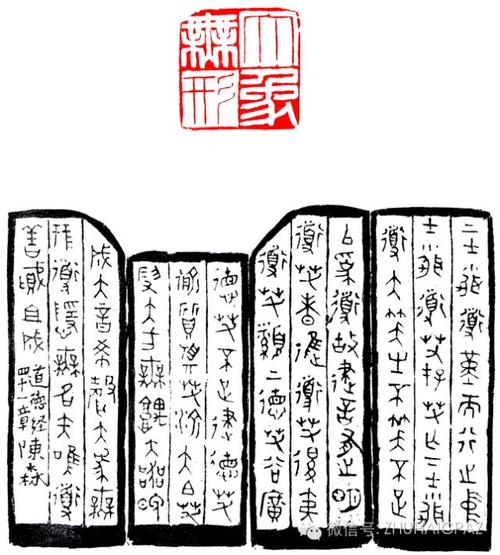 大象
無形
上士聞道堇而行之中
士聞道若存若亡下士聞
道大笑之不笑不足
以為道故建言有之明
道若昧進道若退夷
道若纇上德若谷廣
德若不足建德若
偷質真若渝大白若
辱大方無隅大器晚
成大音希聲大象無
形道隱無名夫唯道
善貸且成 道德經四一章 陳森
微信号: ZHUHAIGPAZ